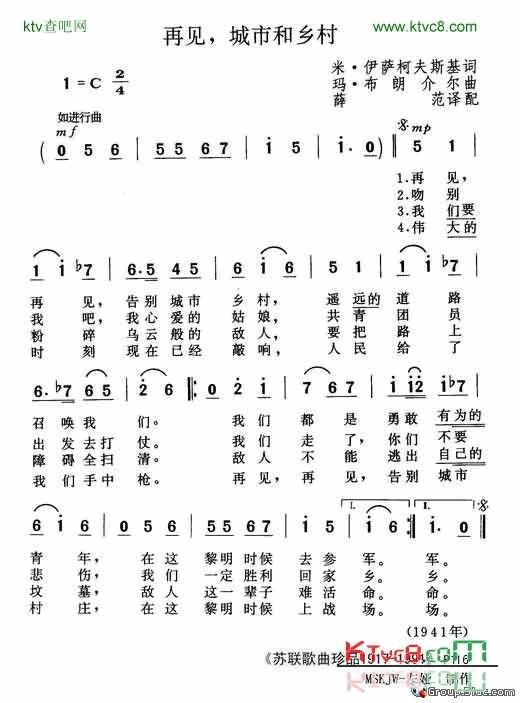 ktv查吧网
www.ktvc8.com
再见，城市和乡村
1=C 2/4
米·伊萨柯夫斯基词
玛·布朗介尔曲
薛 范译配
如进行曲
mf
mp
( 0 5 6 | 5 5 6 7 | i 5 | i. 0 ) ‖ 5 1 |
1.再见，
2.吻别
3.我们要
4.伟大的
1 i ♭7 | 6. 5 4 5 | 6 i 6 | 5 6 5 4 |
再见，告别城市乡村，遥远的道路
我吧，我心爱的姑娘，共青团员
粉碎乌云般的敌人，要把路上
时刻现在已经敲响，人民给了
6. ♭7 6 5 | 2 6 :‖ 0 2 i | 7 6 7 | i i2 | i ♭7 |
召唤我们。我们都是勇敢有为的
出发去打仗。我们走了，你们不要
障碍全扫清。敌人不能逃出自己的
我们手中枪。再见，再见，告别城市
6 i 6 | 0 5 6 | 5 5 6 7 | i 5 | i. 6 :‖ i. 0 ‖
1.
青年，在这黎明时候去参军。军。
悲伤，我们一定胜利回家乡。乡。
坟墓，敌人这一辈子难活命。命。
村庄，在这黎明时候上战场。场。
(1941年)
《苏联歌曲珍品1917-1991
KTVC8.com
MSKJW-
制作
Group31uc.com